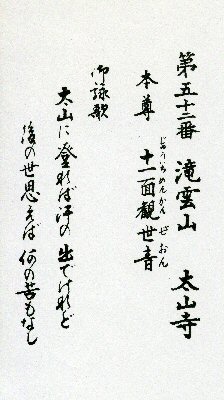 第五十二番 滝雲山 太山寺
本尊 十一面観世音
じゅういちめんかんぜおん
御詠歌
太山に登れば汗の出でけれど
後の世思えば何の苦もなし